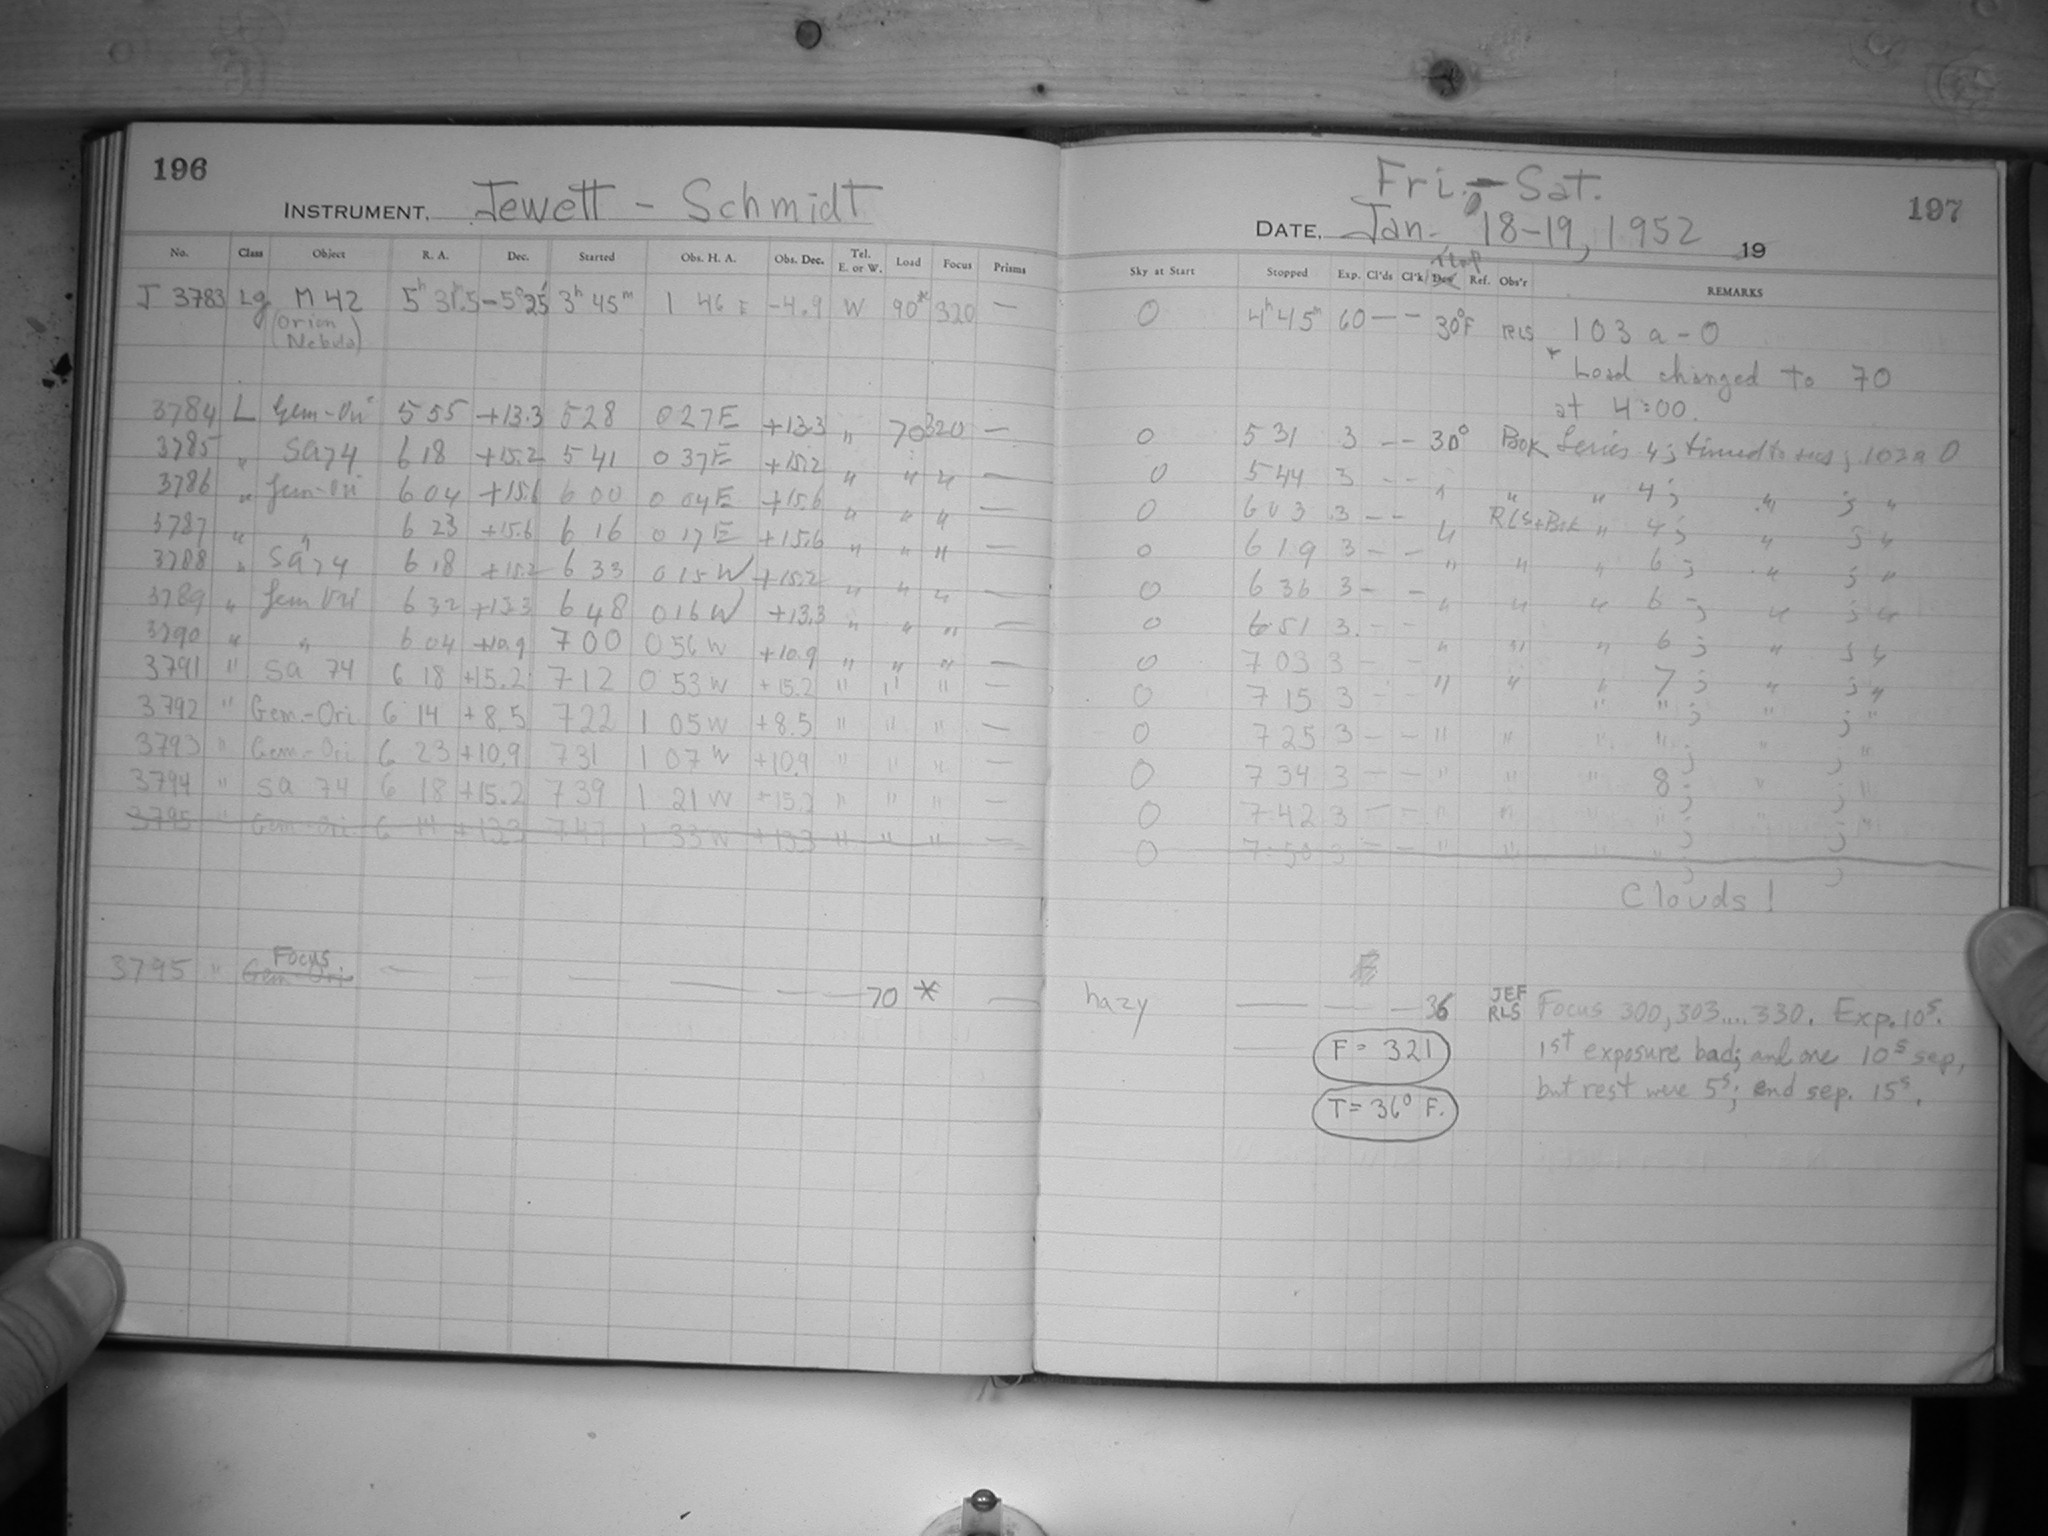 196
INSTRUMENT. Jewett - Schmidt
No. Class Object R. A. Dec. Started Obs. H. A. Obs. Dec. Tel. E. or W. Load Focus Prisms
J 3783 Lg M 42 5h 31m.5 -5°25' 3h 45m 1 46 E -4.9 W 90* 320 —
(Orion
Nebula)
3784 L Gem-Ori 5 55 +13.3 5 28 0 27 E +13.3 " 70 320 —
3785 " SA 74 6 18 +15.2 5 41 0 37 E +15.2 " " " —
3786 " Gem-Ori 6 04 +15.6 6 00 0 04 E +15.6 " " " —
3787 " " 6 23 +15.6 6 16 0 17 E +15.6 " " " —
3788 " SA 74 6 18 +15.2 6 33 0 15 W +15.2 " " " —
3789 " Gem Ori 6 32 +13.3 6 48 0 16 W +13.3 " " " —
3790 " " 6 04 +10.9 7 00 0 56 W +10.9 " " " —
3791 " SA 74 6 18 +15.2 7 12 0 53 W +15.2 " " " —
3792 " Gem.-Ori 6 14 +8.5 7 22 1 05 W +8.5 " " " —
3793 " Gem-Ori 6 23 +10.9 7 31 1 07 W +10.9 " " " —
3794 " SA 74 6 18 +15.2 7 39 1 21 W +15.2 " " " —
3795 " Gem-Ori 6 14 +13.3 7 47 1 33 W +13.3 " " " —
Focus
3795 " Gem-Ori — — — — — — 70 * —
Fri.-Sat.
197
DATE. Jan. 18-19, 1952 19
Sky at Start Stopped Exp. Cl'ds Cl'k Dew Ref. Obs'r REMARKS
0 4h 45m 60 — — 30°F RLS 103 a-O
* Load changed to 70
at 4:00.
0 5 31 3 — — 30° Bok Series 4; timed to ; 103a O
0 5 44 3 — — " " " 4; " ; "
0 6 03 3 — — " RLS+Bok " 4; " ; "
0 6 19 3 — — " " " 6; " ; "
0 6 36 3 — — " " " 6; " ; "
0 6 51 3 — — " " " 6; " ; "
0 7 03 3 — — " " " 7; " ; "
0 7 15 3 — — " " " "; " ; "
0 7 25 3 — — " " " "; " ; "
0 7 34 3 — — " " " 8; " ; "
0 7 42 3 — — " " " "; " ; "
0 7 50 3 — — " " " "; " ;
Clouds!
hazy — — — 36 JEF RLS Focus 300, 303.... 330. Exp. 10s.
F = 321 1st exposure bad; and one 10s sep,
T = 36° F. but rest were 5s; end sep. 15s.